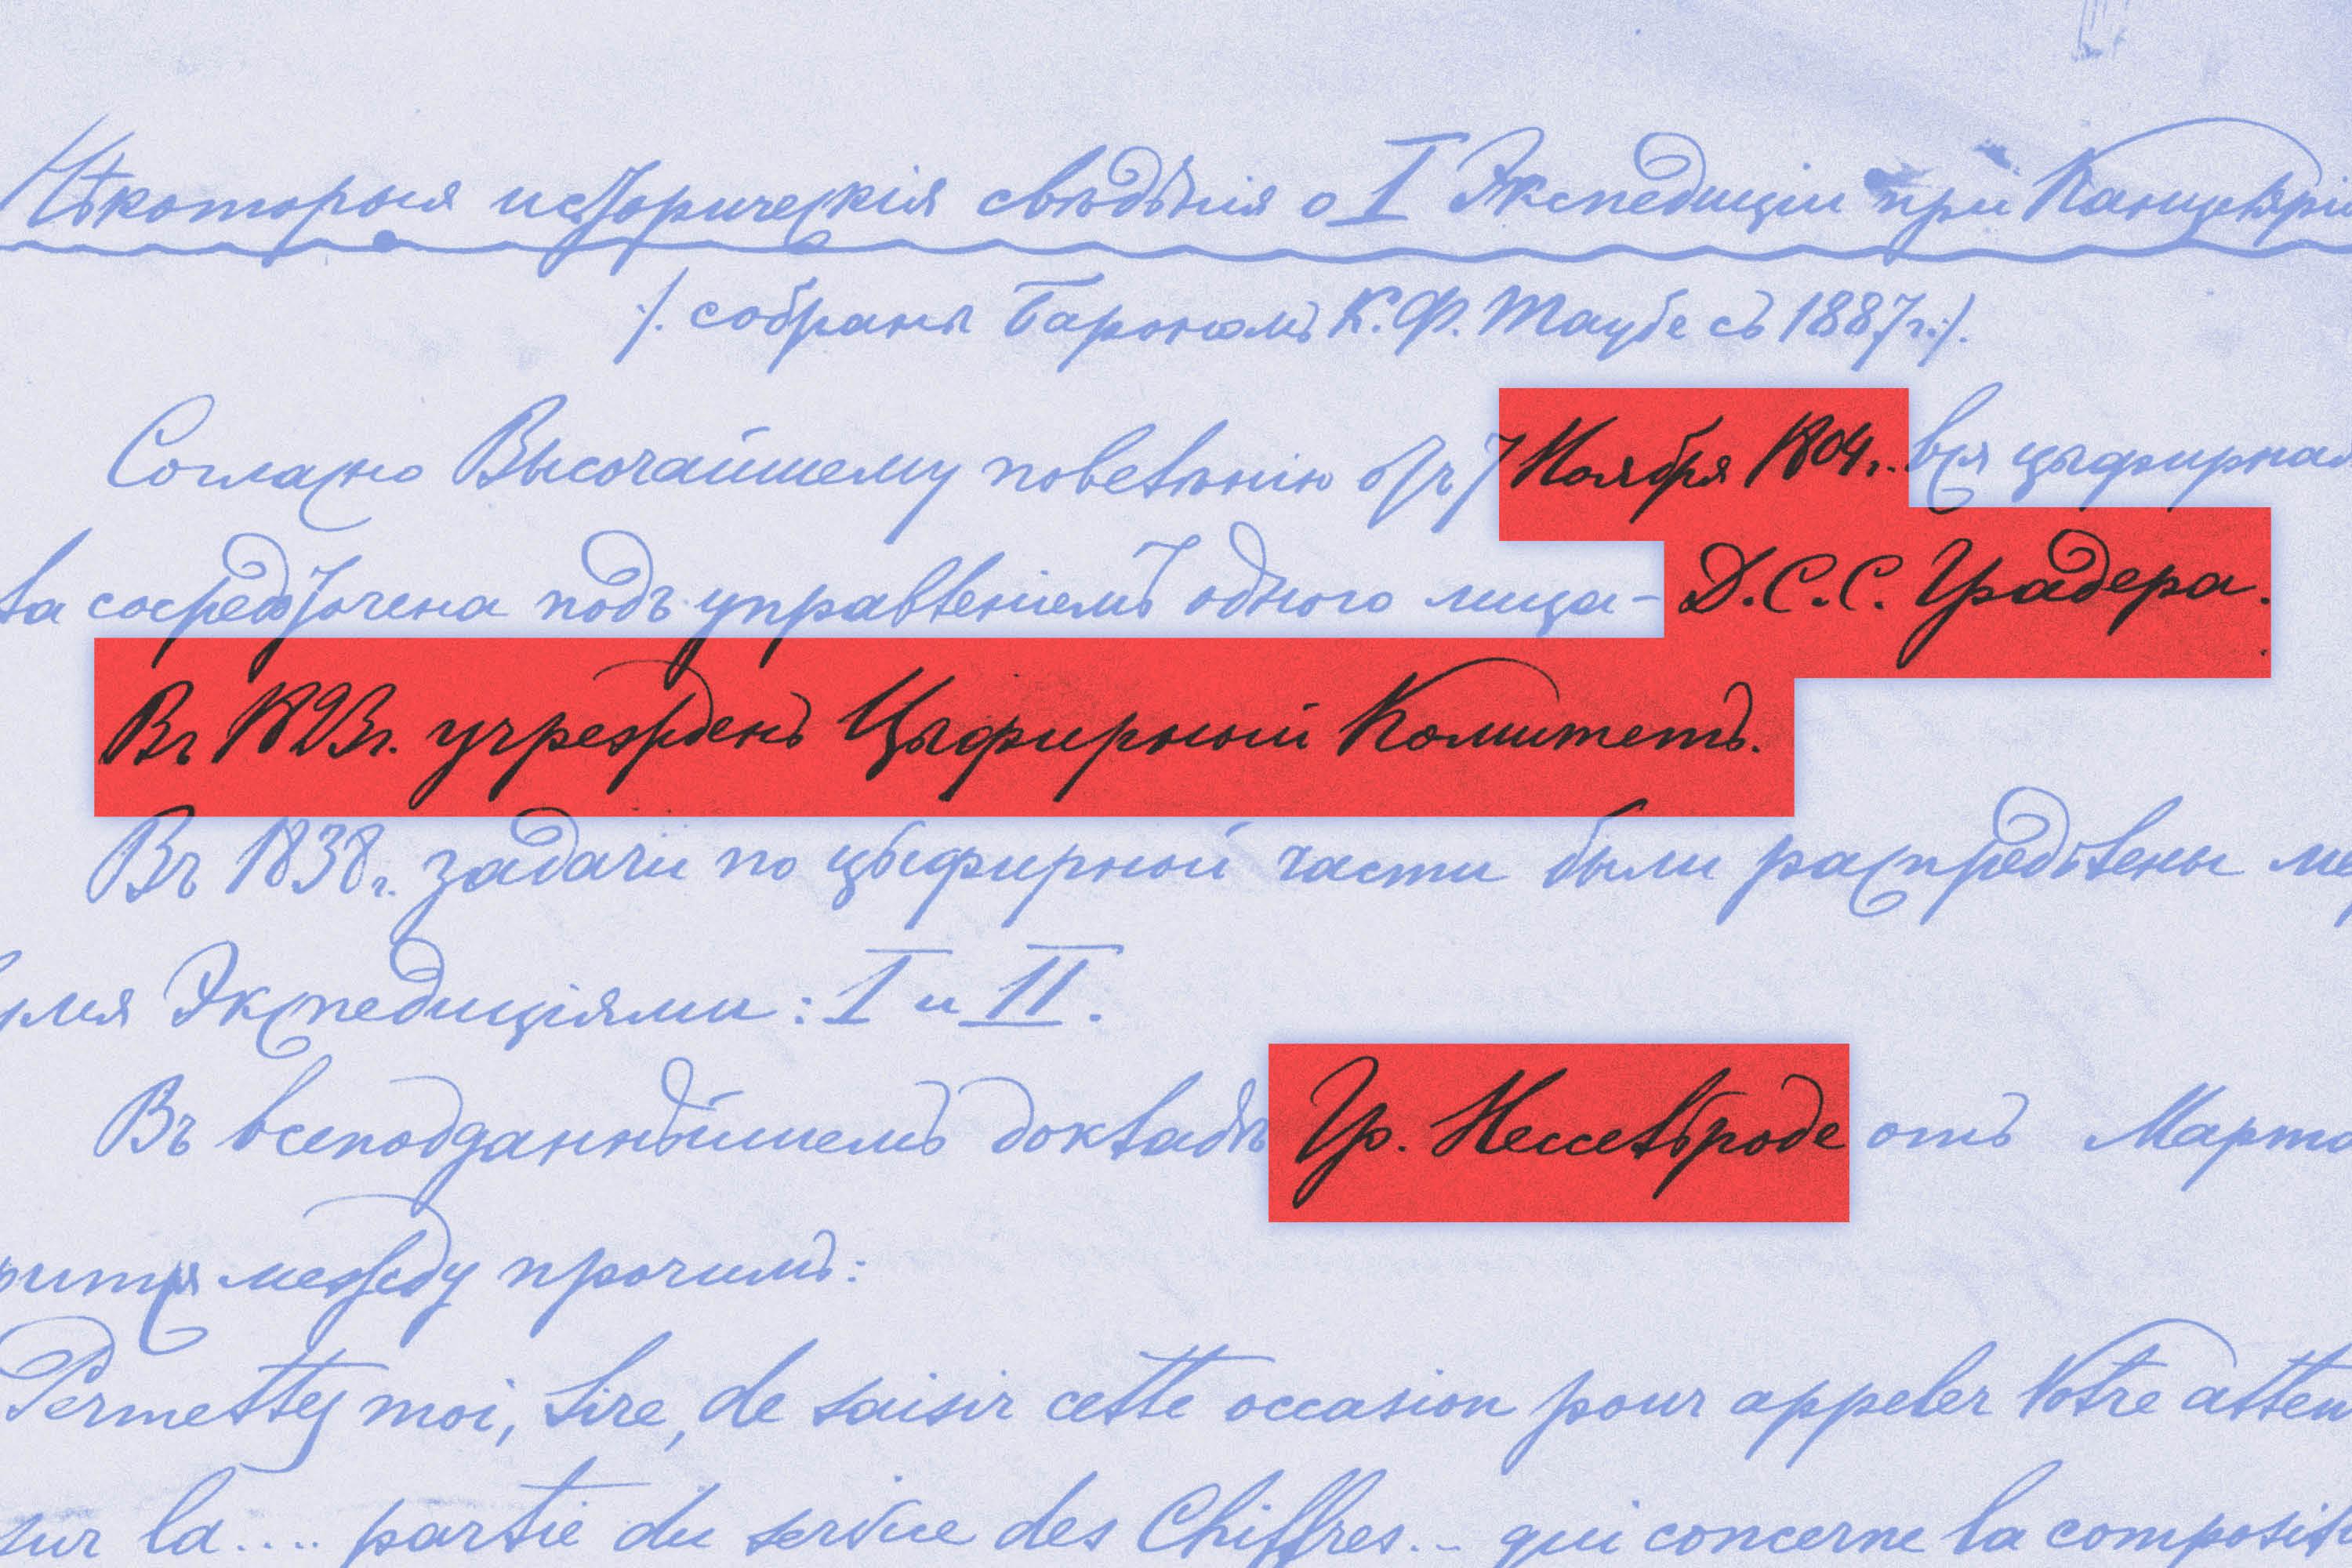 Нѣкоторыя историческія свѣдѣнія о I Экспедиціи при Канцеляріи
/. собраны Барономъ К. Ф. Таубе съ 1887 г. /.
Согласно Высочайшему повелѣнію отъ 7 Ноября 1804 г. вся цыфирная
ва сосредоточена подъ управленіемъ одного лица - Д. С. С. Градера.
Въ 1823 г. учрежденъ Цыфирный Комитетъ.
Въ 1838 г. задачи по цыфирной части были распредѣлены ме
Экспедиціями: I и II.
Въ всеподданнѣйшемъ докладѣ Гр. Нессельроде отъ Марта
рится между прочимъ:
Permettez moi, Sire, de saisir cette occasion pour appeler Votre atten
sur la .... partie du service des Chiffres... qui concerne la composit